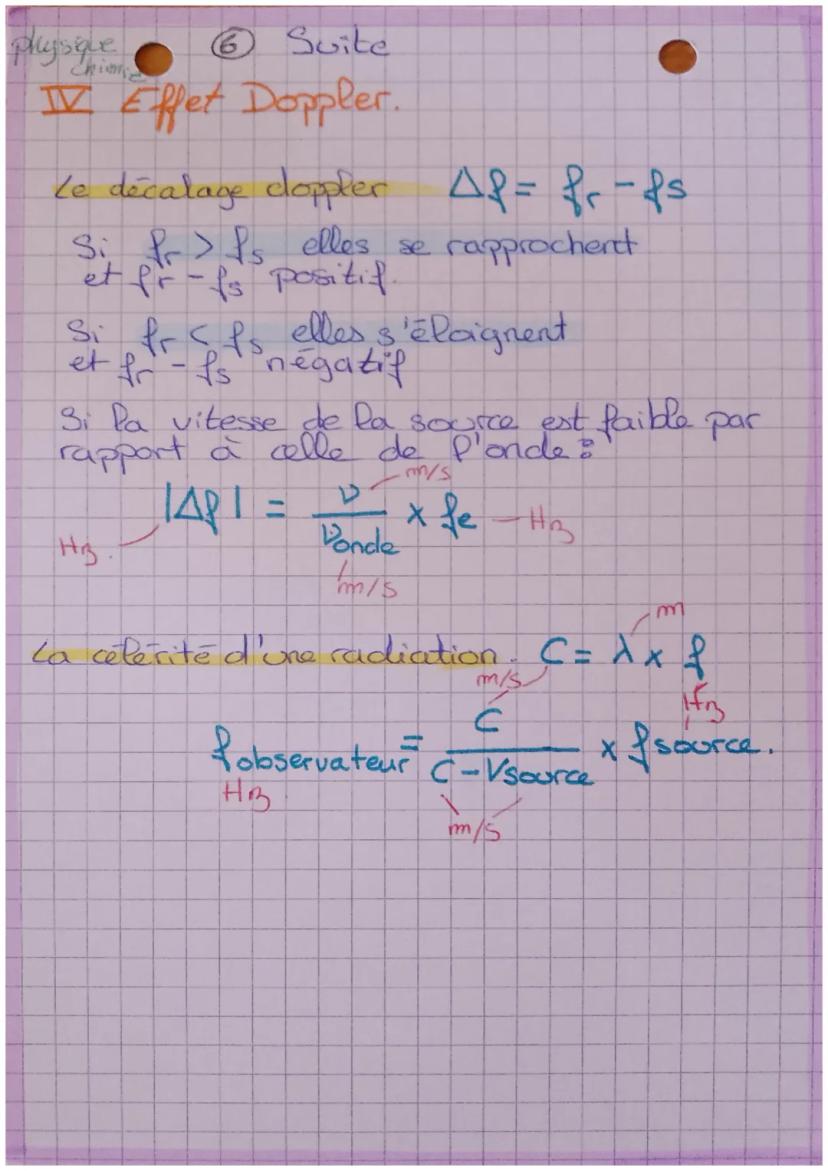 physique chimie ⑥ Suite
IV Effet Doppler.
Le décalage doppler Δf = fr - fs
Si fr > fs elles se rapprochent
et fr - fs positif.
Si fr < fs elles s'éloignent
et fr - fs négatif
Si la vitesse de la source est faible par
rapport à celle de l'onde :
|Δf| = v / vonde × fe
m/s
Hz
Hz
m/s
La célérité d'une radiation. C = λ × f
m
m/s
Hz
fobservateur = C / C - Vsource × fsource.
Hz
m/s